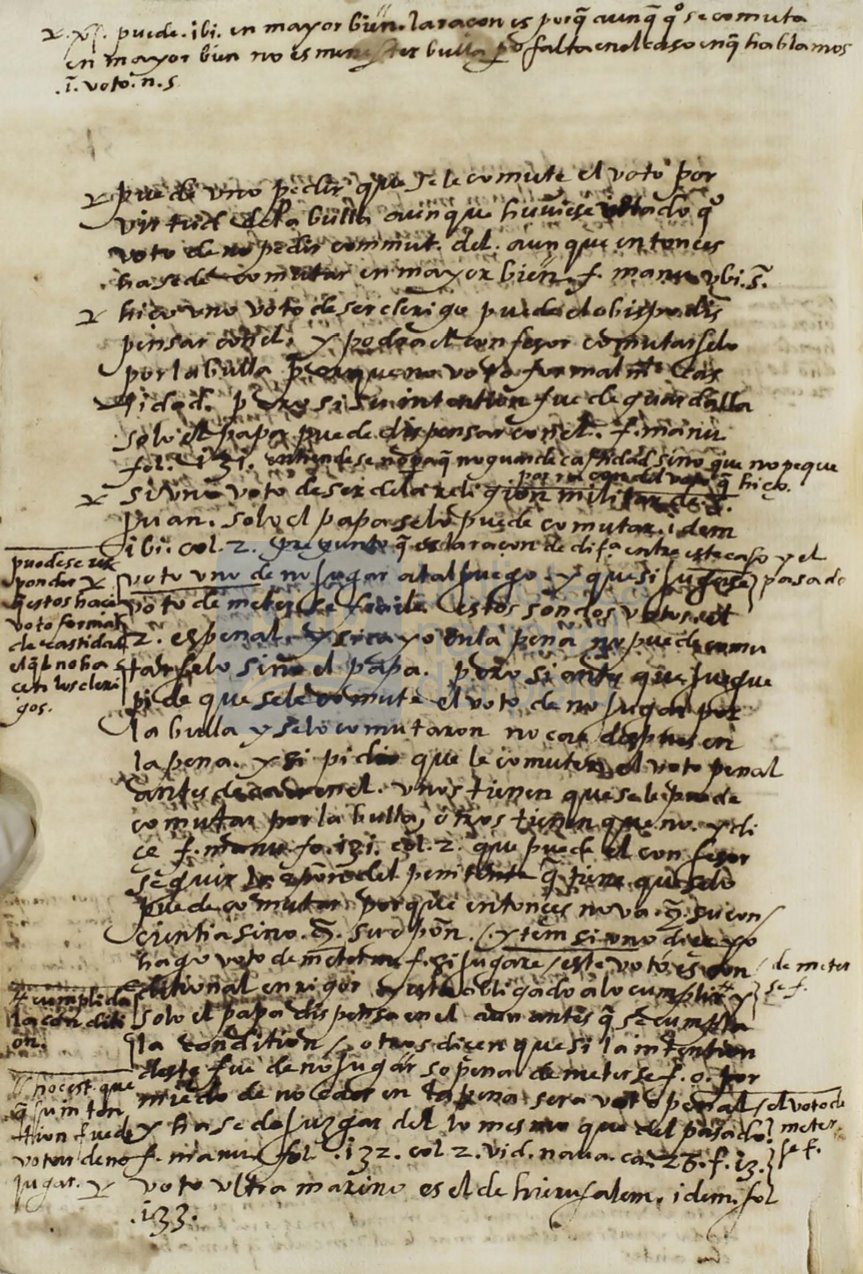 puede. ibi. en mayor bien. la raçon es porq̃ aunq̃ qº se comuta
en mayor bien no es menester bulla pº falta en el caso enq̃ hablamos
.i. voto. n. 5
puede uno pedir que se le comute el voto por
virtud dela bulla aunque huuiese votado qº
voto de no pedir commut. del. aunque entonces
hase de comutar en mayor bien. f. manu. ubi. s.
hiço uno voto de ser clerigo puede el obispo dis
pensar con el. y podra el confesor comutarselo
por la bulla porque no voto formalmte cas
tidad. pero si su intention fue de guardalla
solo el papa puede dispensar con el. f. manu
fol. 131. entiendese no paq̃ no guarde castidad sino que no peque
por raçon del voto q̃ hiço.
si uno voto de ser dela religion militar de S.
Juan. solo el papa se lo puede comutar. idem
ibi. col. 2. pregunto q̃ es la raçon de difª entre este caso y el
pasado
voto uno de no jugar a tal juego. y que si jugase
voto de meterse fraile estos son dos votos. el
2. es penal. y si cayo en la pena no puede comu
tarselo sino el papa. pero si antes que juegue
pide que se le comute el voto de no jugar por
la bulla y se lo comutaron no cae despues en
la pena. y si pidio que le comuten el voto penal
antes de caer en el. unos tienen que se le puede
comutar por la bulla, otros tienen que no. y di
ce f. manu. fo. 131. col. 2. que puede el confesor
seguir la opon del penitente q̃ tiene que se lo
puede comutar. porque entonces no va. q̃. su con
cientia sino. q̃. su opon. ytem si uno dice yo
hago voto de meterme f. si jugare / este voto es con
ditional en rigor y esta obligado a lo cumplir y
solo el papa dispensa en el aun antes q̃ se cumpla
la condition / otros dicen que si la intention
deste fue de no jugar so pena de meterse f. o. por
miedo de no caer en la pena sera voto penal
y hase de juzgar del lo mesmo que del pasado.
f. manu. fol. 132. col 2. vid. naua. ca. 26. f. 13.
voto ultra marino es el de hierusalem. idem. fol
.133.
puedese res
ponder
q̃ estos hacẽ
voto formal
de castidad
el q̃l no ha
cen los cleri
gos.
cumplida
la conditi
on.
hoc est. que
q̃ su inten
tion fue de
votar de no
jugar.
de meter
se f.
el voto de
meter
se f.